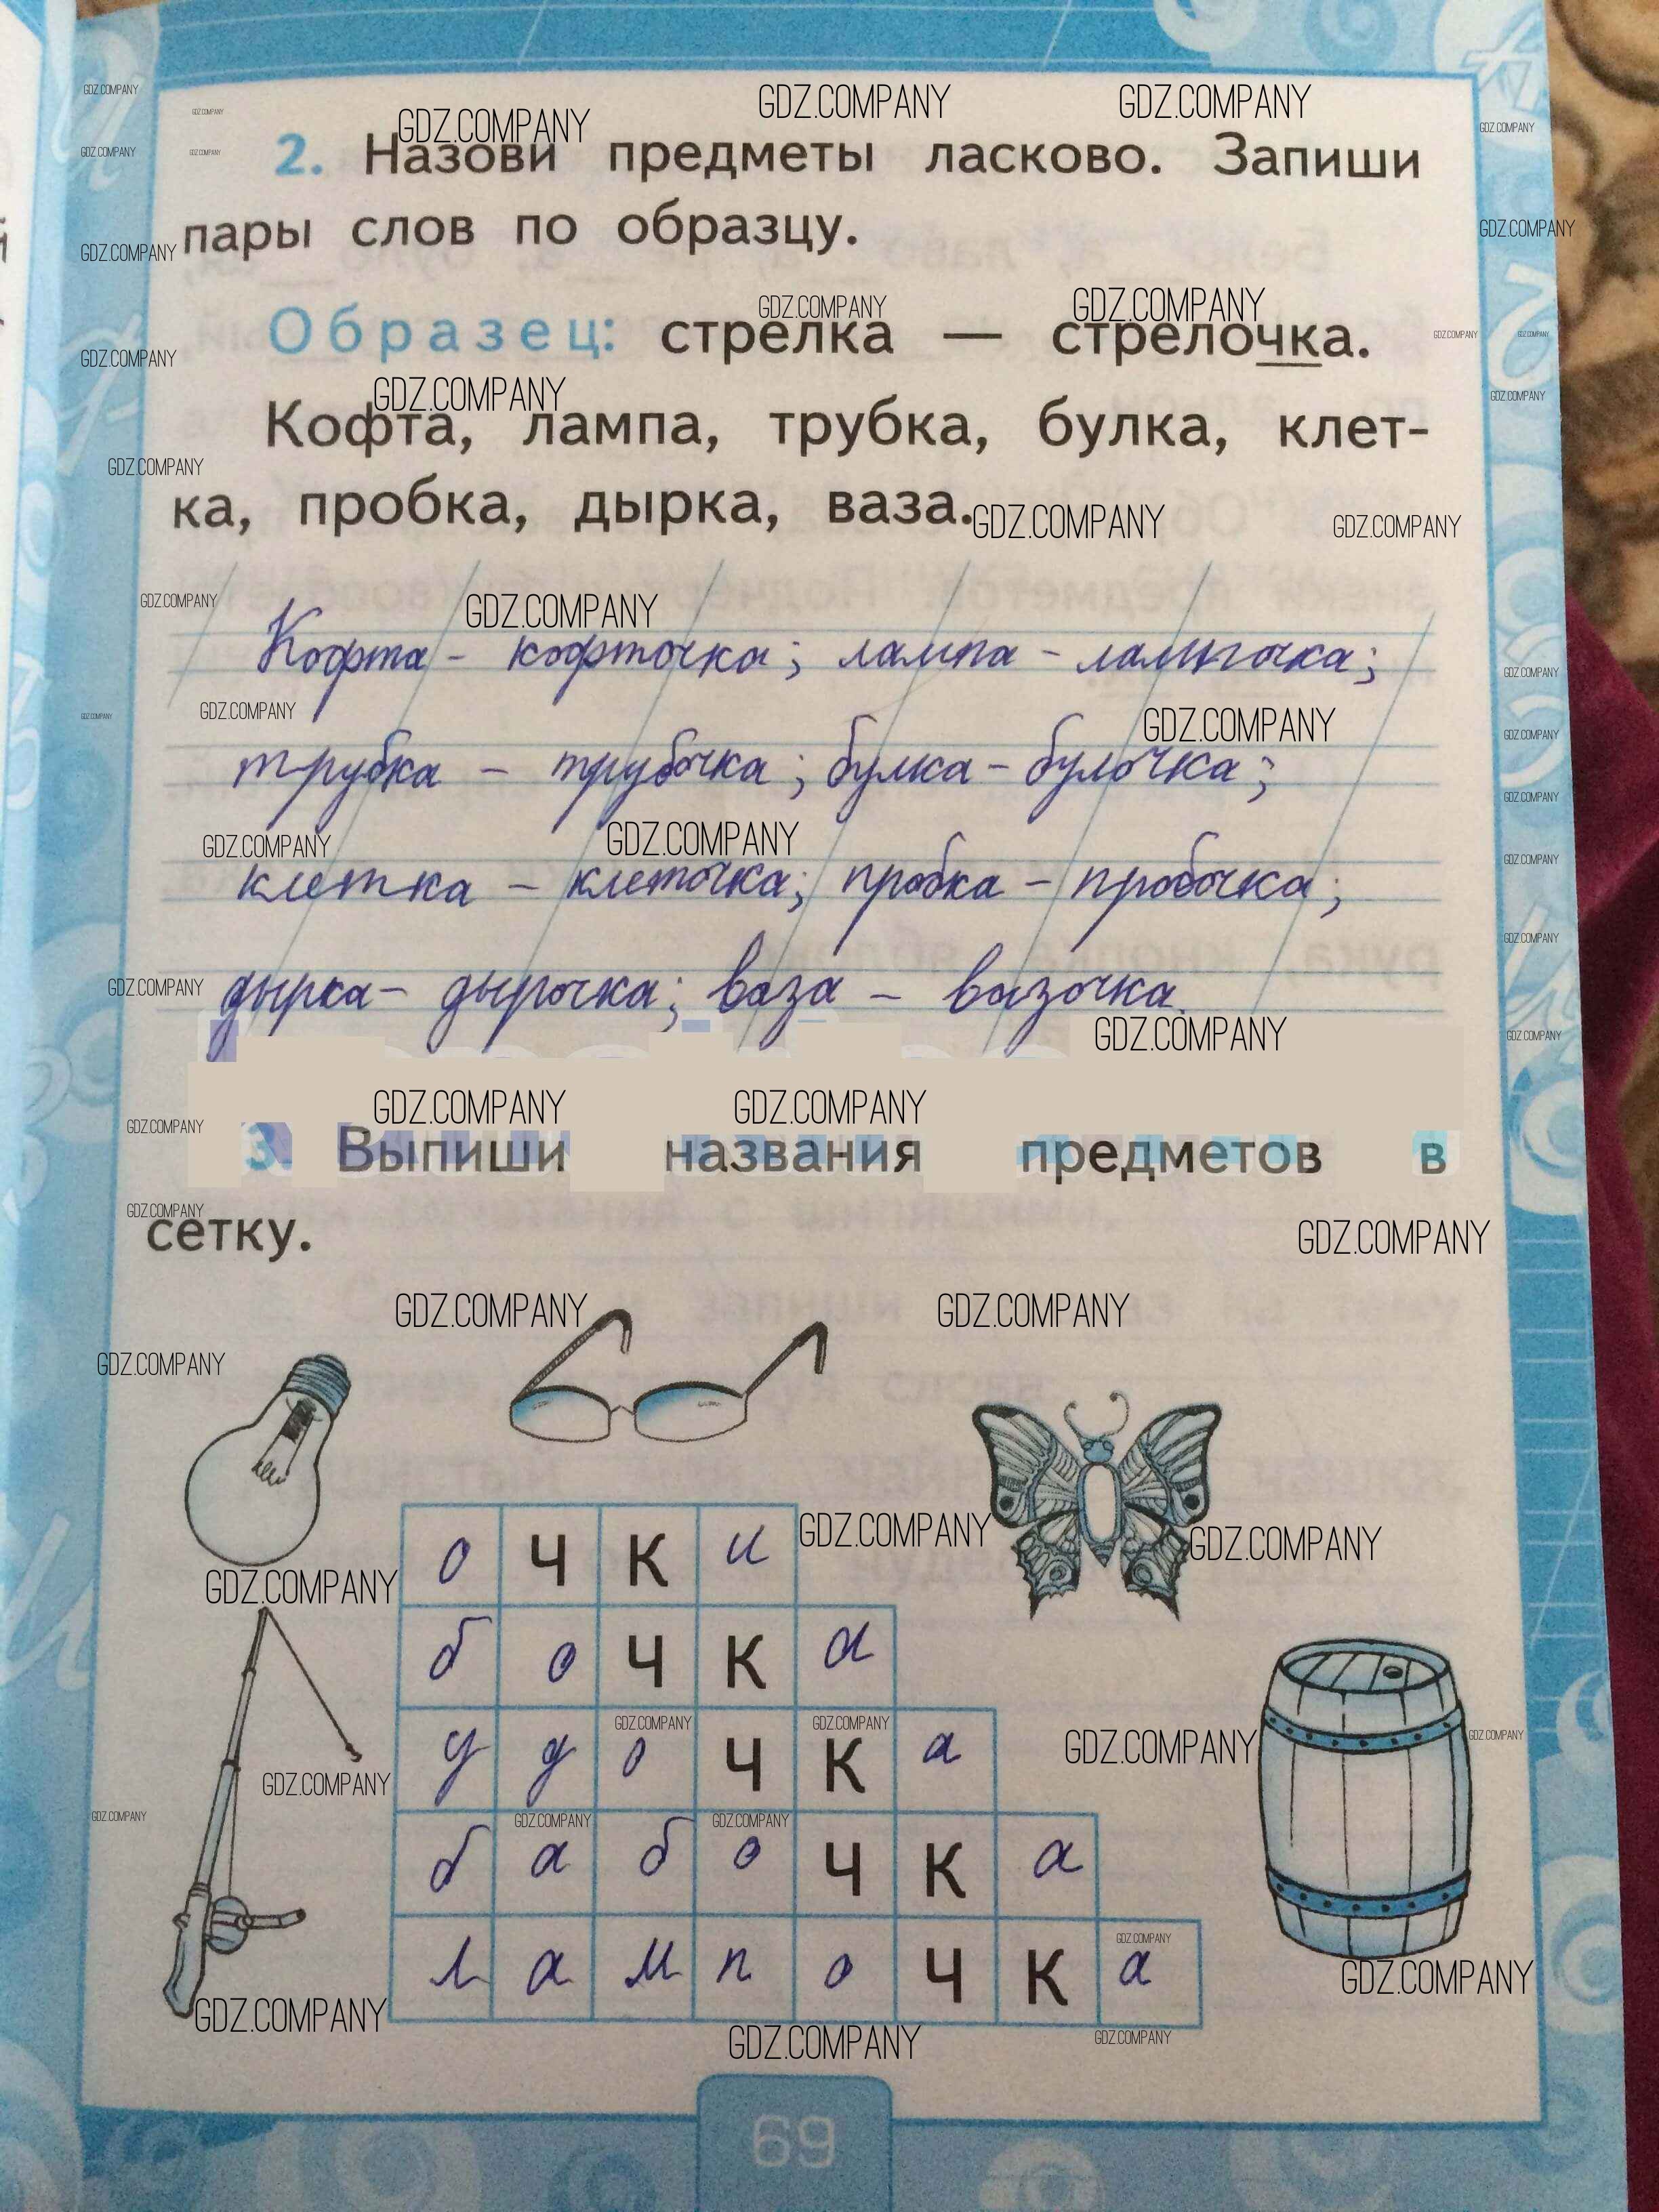 2. Назови предметы ласково. Запиши
пары слов по образцу.
Образец: стрелка — стрелочка.
Кофта, лампа, трубка, булка, клет-
ка, пробка, дырка, ваза.
Кофта - кофточка; лампа - лампочка;
трубка - трубочка; булка - булочка;
клетка - клеточка; пробка - пробочка;
дырка - дырочка; ваза - вазочка.
3. Выпиши названия предметов в
сетку.
очки
бочка
удочка
бабочка
лампочка
69
GDZ.COMPANY